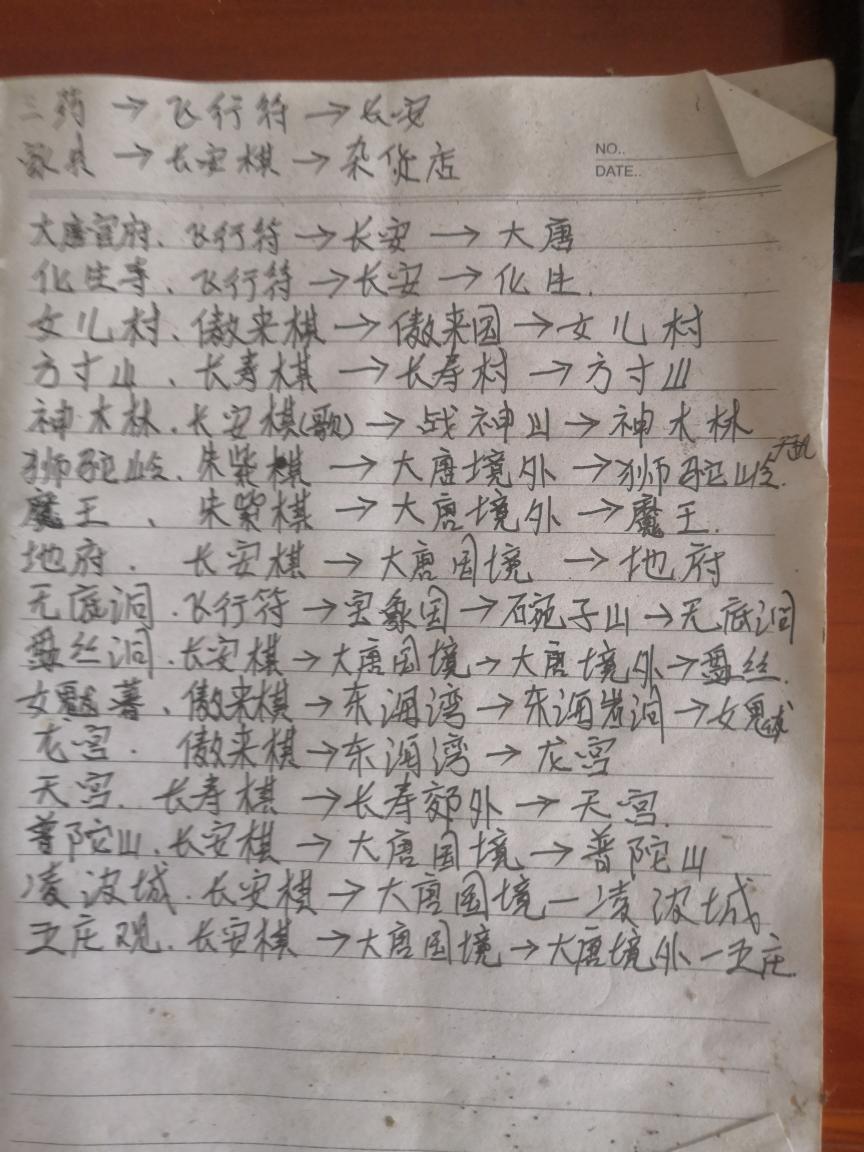 三药 → 飞行符 → 长安
→ 长安棋 → 杂货店
NO..
DATE..
大唐官府、飞行符 → 长安 → 大唐
化生寺、飞行符 → 长安 → 化生.
女儿村、傲来棋 → 傲来国 → 女儿村
方寸山、长寿棋 → 长寿村 → 方寸山
神木林.长安棋(歌) → 战神山 → 神木林
狮驼岭、朱紫棋 → 大唐境外 → 狮驼岭.
魔王、朱紫棋 → 大唐境外 → 魔王.
地府. 长安棋 → 大唐国境 → 地府
无底洞.飞行符 → 宝象国 → 碗子山 → 无底洞
盘丝洞.长安棋 → 大唐国境 → 大唐境外 → 盘丝.
女魃墓、傲来棋 → 东海湾 → 东海岩洞 → 女魃
龙宫. 傲来棋 → 东海湾 → 龙宫
天宫. 长寿棋 → 长寿郊外 → 天宫.
普陀山.长安棋 → 大唐国境 → 普陀山
凌波城.长安棋 → 大唐国境 — 凌波城
五庄观.长安棋 → 大唐国境 → 大唐境外 — 五庄.